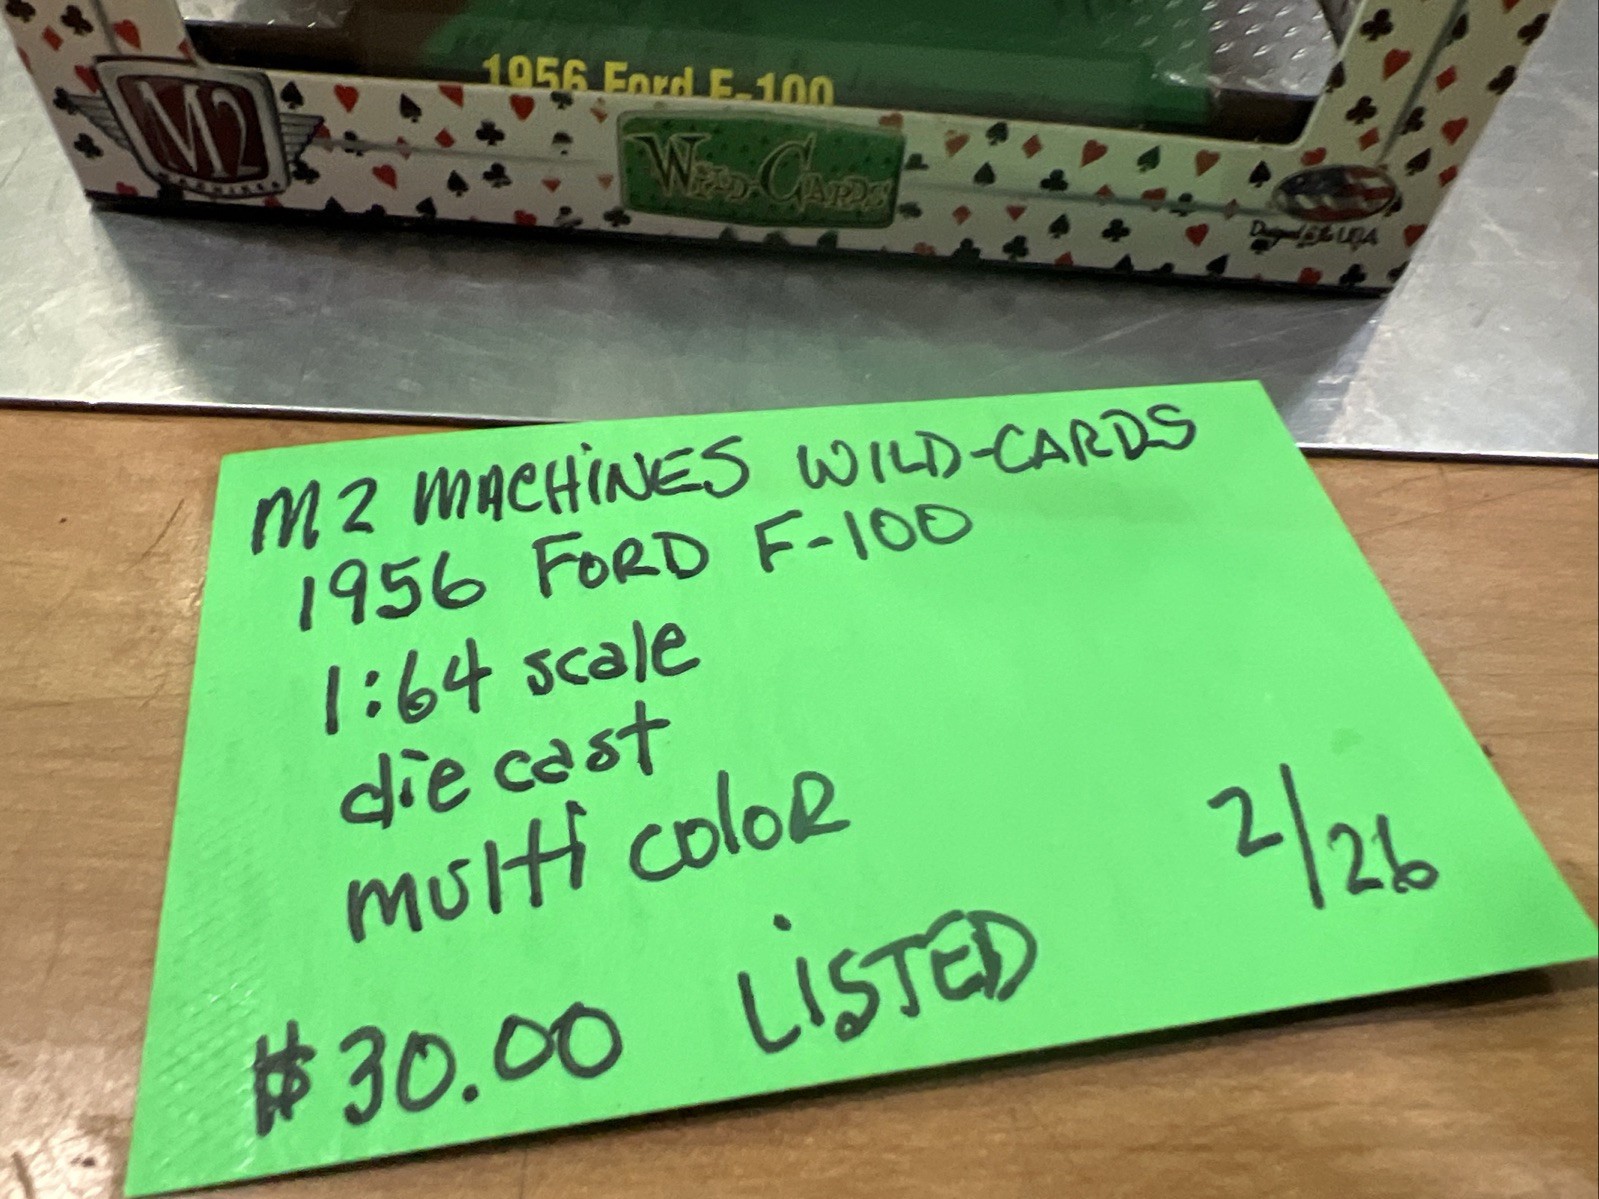 1956 Ford F-100
M2
MACHINES
WILD-CARDS
Designed in the USA
M2 MACHiNES WILD-CARDS
1956 FORD F-100
1:64 scale
die cast
multi coloR
2/26
$30.00 LiSTED